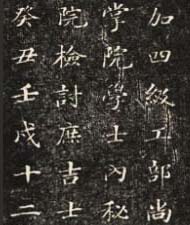 加四級工部尚
掌院學士內秘
院檢討庶吉士
癸丑壬戌十二